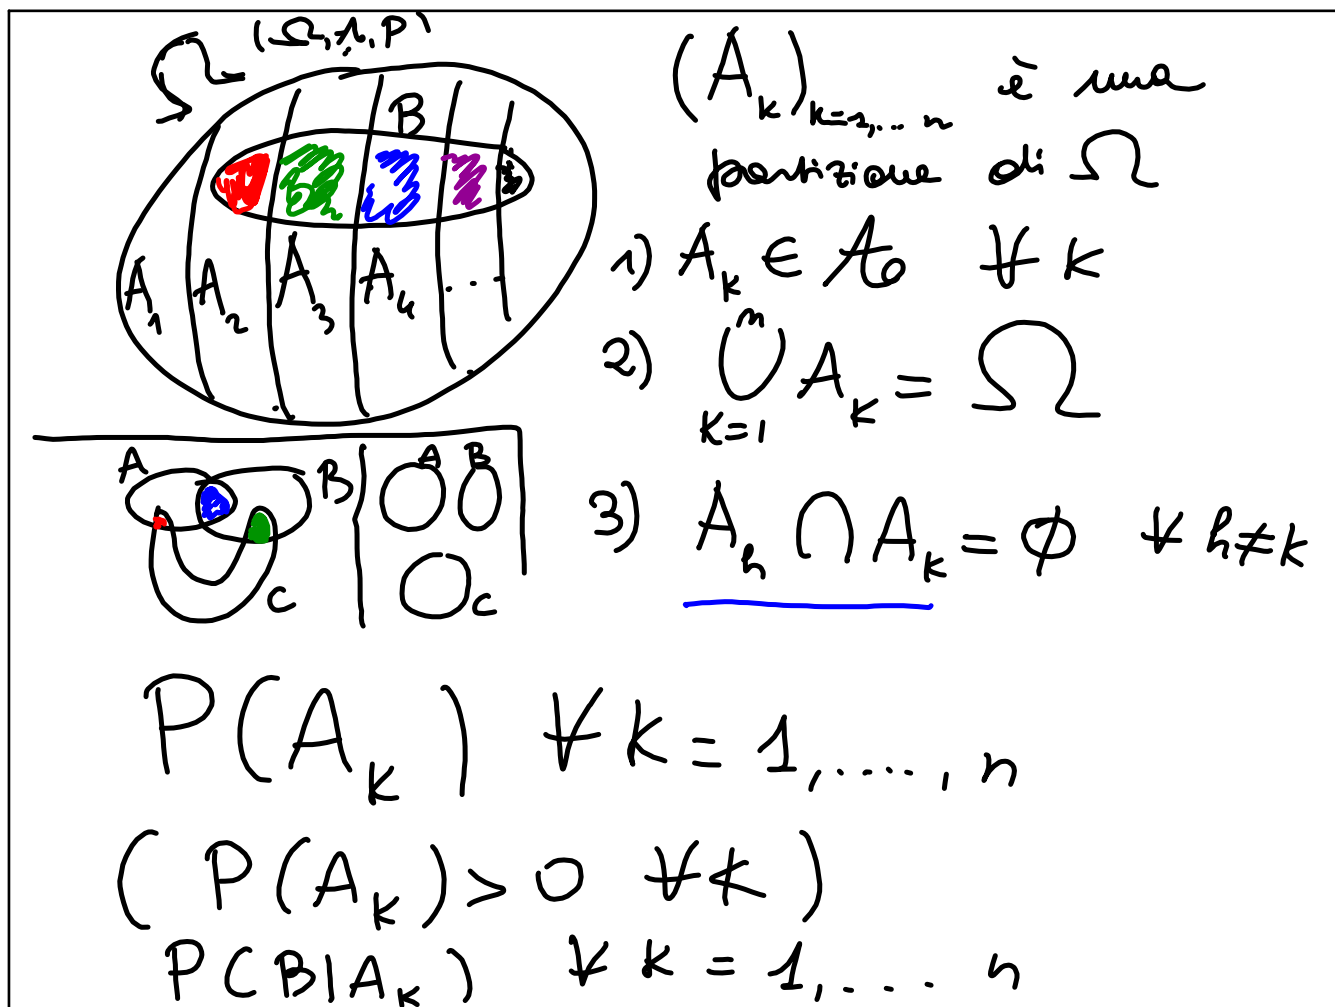 (Ω, A, P)
Ω
B
A₁ A₂ A₃ A₄ ...
(A_k)_{k=1,... n} è una
partizione di Ω
1) A_k ∈ A ∀ k
2) ⋃_{k=1}^{n} A_k = Ω
3) A_h ∩ A_k = ∅ ∀ h≠k
A B
C
A B
C
P(A_k) ∀ k = 1, ...., n
( P(A_k) > 0 ∀ k )
P(B|A_k) ∀ k = 1, ... n